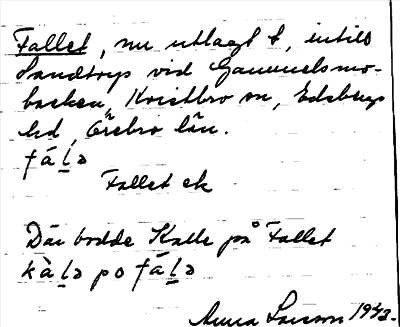 Fallet, nu utlagt t, intill
Sandtorp vid Gammelsmo-
backen, Kvistbro sn, Edsbergs
hd, Örebro län.
fá̱lə
Fallet ek
Där bodde Kalle på Fallet
kàḻə po fáḻə
Anna Larsson 1943.